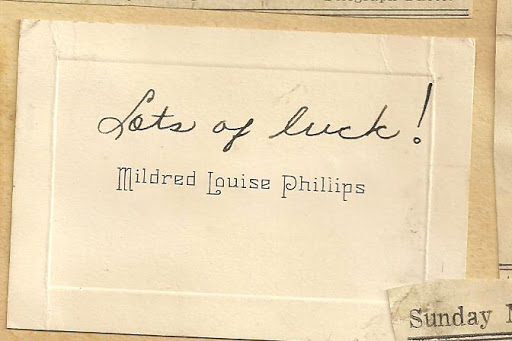 Lots of luck!
Mildred Louise Phillips
Sunday